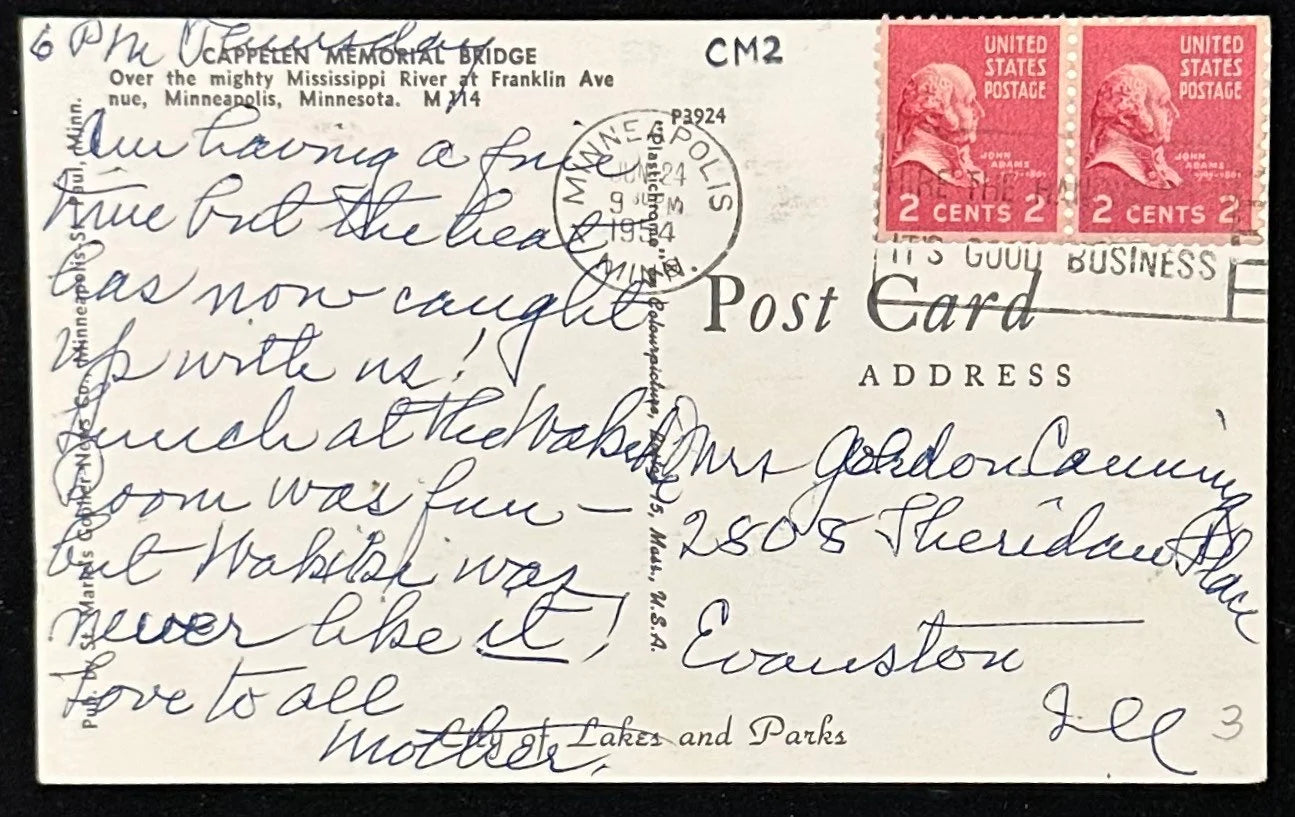 6 PM Thursday
CAPPELEN MEMORIAL BRIDGE
Over the mighty Mississippi River at Franklin Ave
nue, Minneapolis, Minnesota. M 114
Am having a fine
time but the heat
has now caught
up with us!
Lunch at the Wakiki
Room was fun –
but Wakiki was
never like it!
Love to all
Mother.
Pub. by St. Marie's Gopher News Co., Minneapolis-St. Paul, Minn.
"Plastichrome" by Colourpicture, Boston 15, Mass., U.S.A.
CM2
P3924
MINNEAPOLIS
JUN 24
9 30 PM
1954
MINN.
UNITED
STATES
POSTAGE
JOHN
ADAMS
1797-1801
2 CENTS 2
UNITED
STATES
POSTAGE
JOHN
ADAMS
1797-1801
2 CENTS 2
HIRE THE
IT'S GOOD BUSINESS
Post Card
ADDRESS
Mrs Gordon Canning
2808 Sheridan Place
Evanston
Ill
3
City of Lakes and Parks